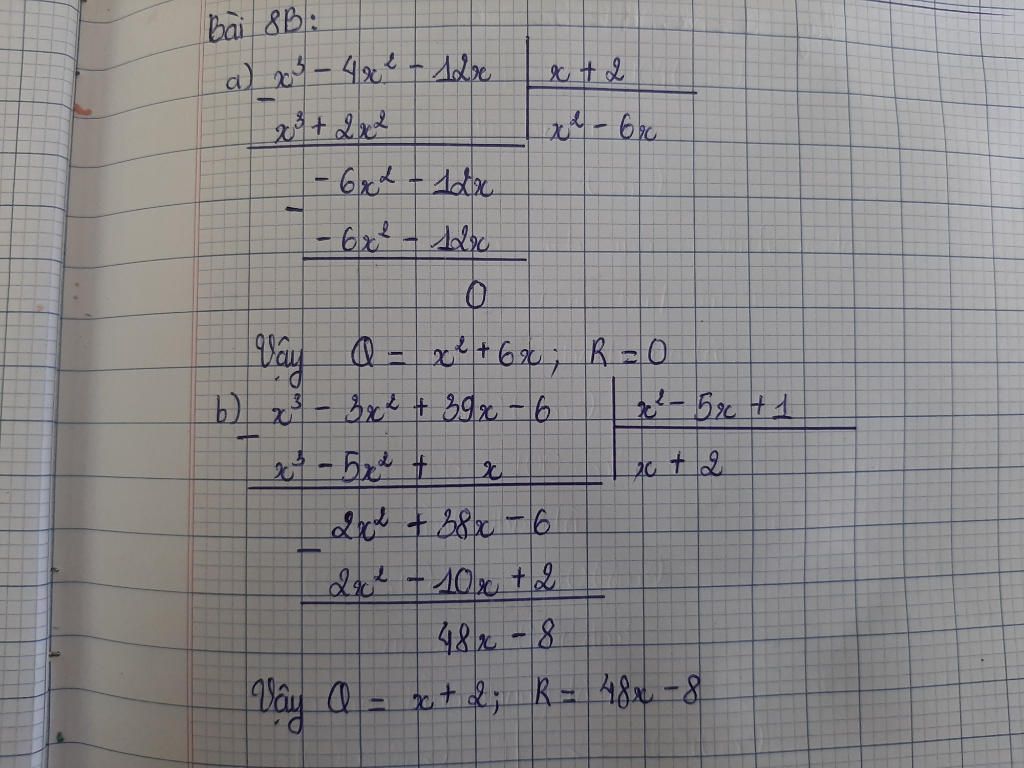 Bài 8B:
a) x³ - 4x² - 12x | x + 2
- x³ + 2x² | x² - 6x
- 6x² - 12x
-
- 6x² - 12x
0
Vậy Q = x² + 6x; R = 0
b) x³ - 3x² + 39x - 6 | x² - 5x + 1
- x³ - 5x² + x | x + 2
2x² + 38x - 6
-
2x² - 10x + 2
48x - 8
Vậy Q = x + 2; R = 48x - 8